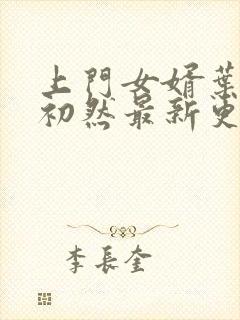 上門女婿葉
初然最新更
李長奎